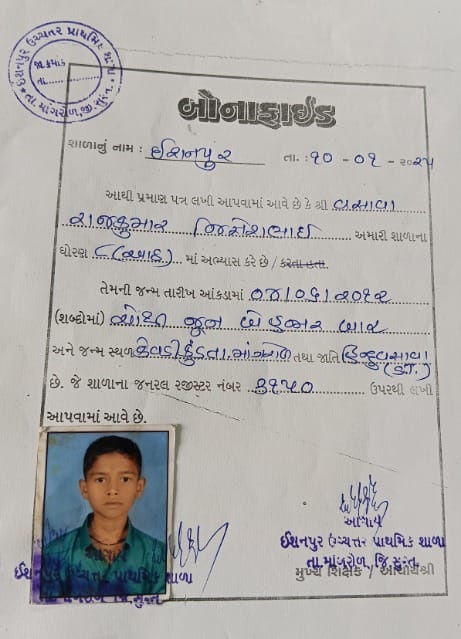 ઈશનપુર ઉચ્ચતર પ્રાથમિક શાળા
જા.ક્રમાંક
તા.
તા. માંગરોળ, જી. સુરત.
બોનાફાઈડ
શાળાનું નામ : ઈશનપુર તા. : ૧૦ - ૦૧ - ૨૦૨૫
આથી પ્રમાણ પત્ર લખી આપવામાં આવે છે કે શ્રી વસાવા
રાજકુમાર જિગ્નેશભાઈ અમારી શાળાના
ધોરણ ૮ (આઠ) માં અભ્યાસ કરે છે / કરતા હતા.
તેમની જન્મ તારીખ આંકડામાં ૦૪/૦૬/૨૦૧૨
(શબ્દોમાં) ચોથી જૂન બે હજાર બાર
અને જન્મ સ્થળ કેવડી કુંડતા. માંગરોળ તથા જાતિ હિન્દુ વસાવા
(S.T.)
છે. જે શાળાના જનરલ રજીસ્ટર નંબર ૩૧૫૦ ઉપરથી લખી
આપવામાં આવે છે.
આચાર્ય
ઈશનપુર ઉચ્ચતર પ્રાથમિક શાળા
તા. માંગરોળ, જિ. સુરત.
મુખ્ય શિક્ષક / આચાર્યશ્રી
આચાર્ય
ઈશનપુર ઉચ્ચતર પ્રાથમિક શાળા
તા. માંગરોળ, જિ. સુરત